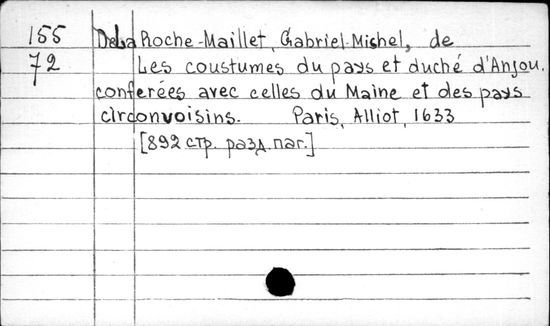 155 DeLa Roche-Maillet, Gabriel-Michel, de
72 Les coustumes du pays et duché d'Anjou.
conferées avec celles du Maine et des pays
circonvoisins. Paris, Alliot, 1633
[892 стр. разд. паг.]